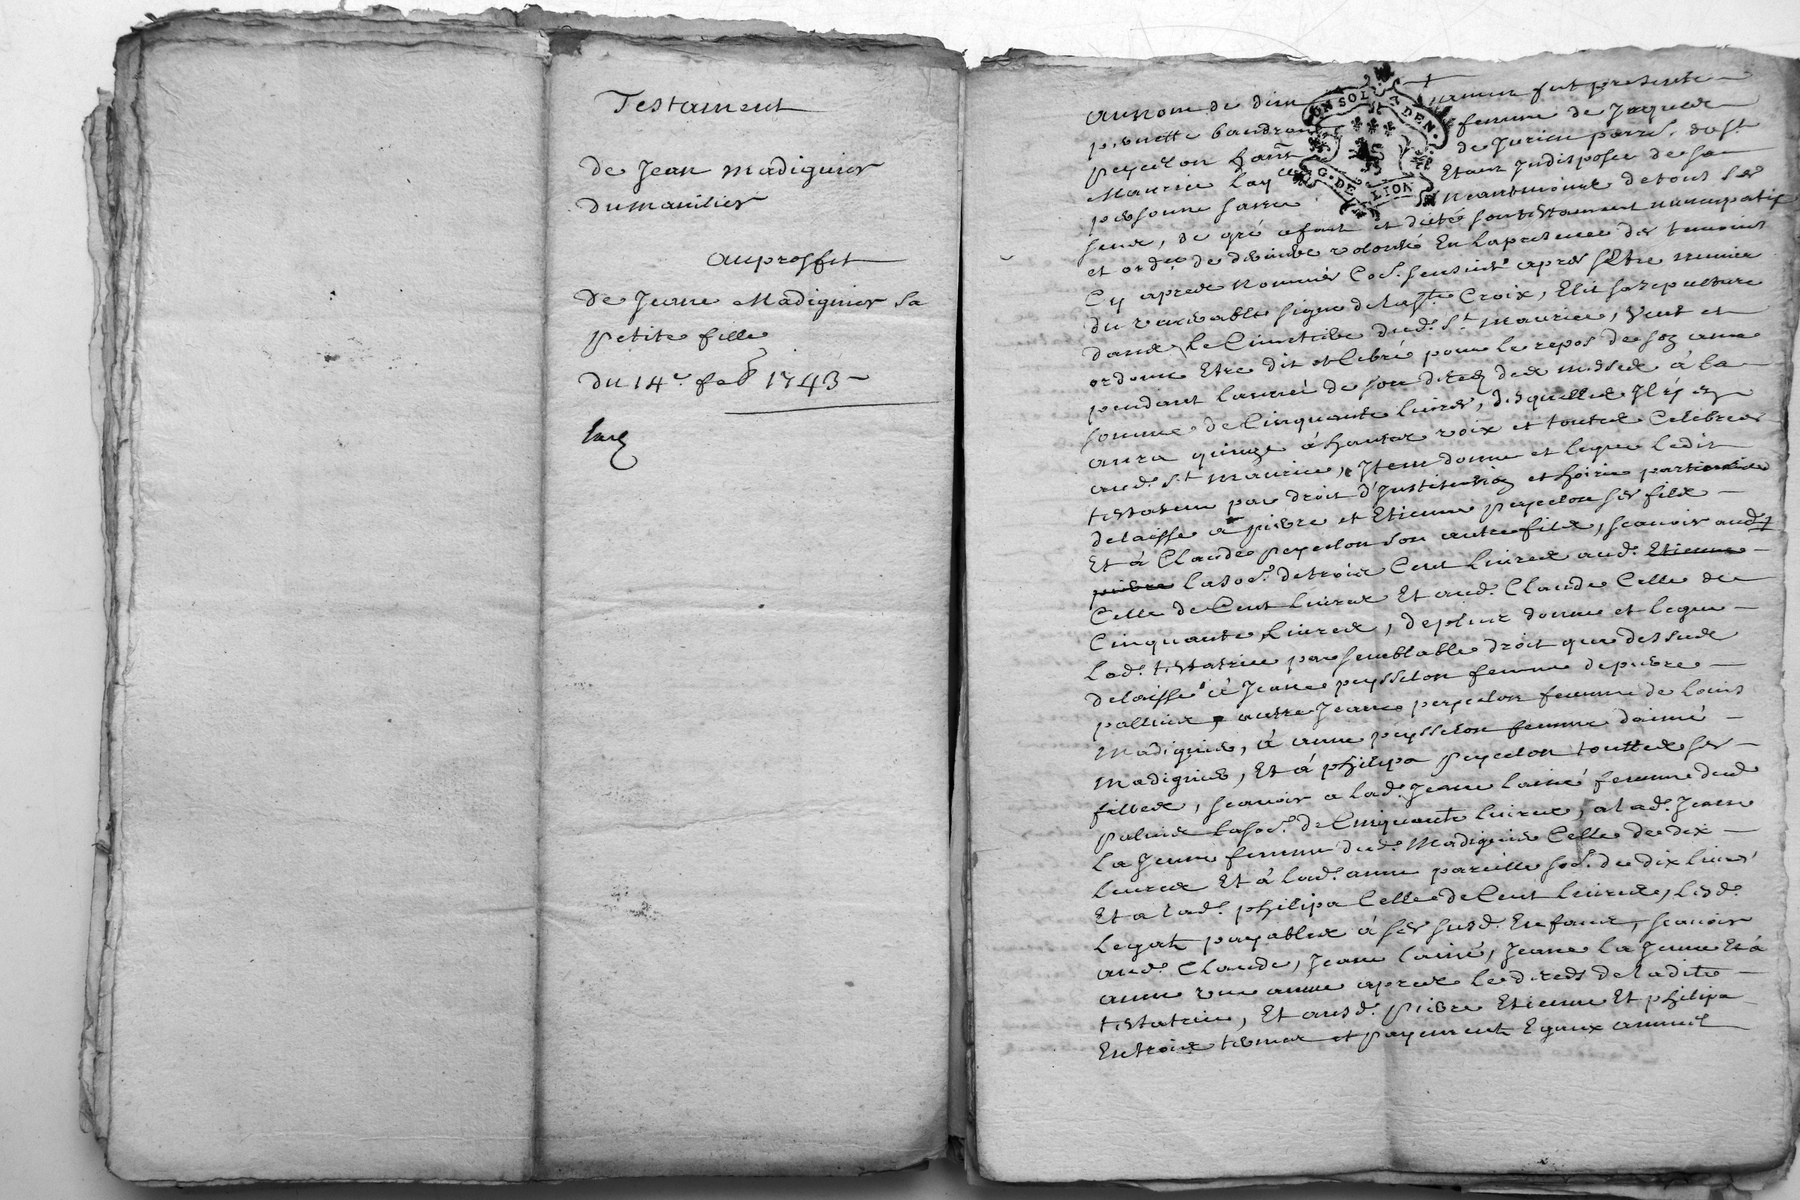 Testament
de Jean Madignier
du maulier
au proffit
de Jeane Madignier sa
petite fille
du 14e. feb 1743
UN SOL 4 DEN.
G. DE LION
au nom de dieu amen fut presente
pernette Gaudran femme de Jaques
peycelon de Jurieu parre. de St.
Maurice Laye Etant Indisposee de sa
personne saine neantmoins de tous ses
sens, de gré a fait et dicté son testament nuncupatif
et ordce. de derniere volonté En la presence des temoins
Cy apres nommés Co. sensuit apres sestre munier
du venerable signe de la Ste. Croix, Elit sa sepulture
dans le Cimetiere dud. St. Maurice, veut et
ordonne Etre dit et celebré pour le repos de son ame
pendant lannée de son deceds des messes à la
somme de Cinquante livres, desquelles Il y en
aura quinze à hautes voix et toutes Celebrees
aud. St. maurice, Item donne et legue ledit
testateur par droit d'Institution et hoirie particuliere
delaisse à pierre et Etienne peycelon ses fils
Et à Claude peycelon son autre fils, scavoir aud.
pierre la so. de trois Cent livres aud. Etienne
Celle de Cent livres Et aud. Claude Celle de
Cinquante livres, de plus donne et legue
lad. testatrice par semblable droit que dessus
delaisse à Jeane peysselon femme de pierre
palluis, autre Jeane peycelon femme de louis
Madignier, à anne peysselon femme daimé
Madignier, Et à philipa peycelon touttes ses
filles, scavoir a lad. Jeane lainé femme dud.
paluis la so. de Cinquante livres, a lad. Jeane
La Jeune femme dud. Madignier Celle de dix
livres Et à lad. anne pareille so. de dix livres
Et a lad. philipa Celle de Cent livres, lesd.
legats payables à ses susd. Enfans, scavoir
aud. Claude, Jeane lainé, Jeane la Jeune Et à
anne une année apres le deceds de ladite
testatrice, Et ausd. pierre Etienne Et philipa
En trois termes et payements Egaux annuel